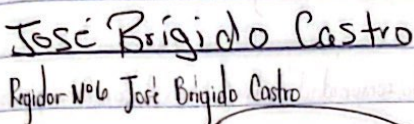 José Brígido Castro
Regidor Nº6 José Brigido Castro